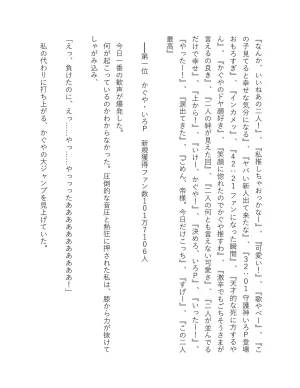 『なんか、いいねあの二人！』、『私推しちゃおっかな！』、『可愛い！』、『歌やべー！』、『こ
の子見てると幸せな気分になる』、『ヤバい新人出て来たな』、『32:01守護神いろP登場
おもろすぎ』、『インカメ？』、『42:21ファンになった瞬間』、『天才的な死に方するや
ん』、『かぐやのドヤ顔好き』、『笑顔に惚れたのでかぐや推すわ』、『激辛でもごちそうさまが
言えるの良き』、『二人の絆が見えた回』、『二人の何とも言えない可愛さ』、『二人が並んでる
だけで幸せ』、『上から！』、『いけー！かぐやー！』、『決めろ、いろP』、『いったーー！』、
『やったーー！』、『涙出てきた』、『ごめん、帝様。今日だけこっち』、『すげー』、『この二人
最高』
──第一位　かぐや・いろP　新規獲得ファン数101万7106人
今日一番の歓声が爆発した。
何が起こっているのかわからなかった。圧倒的な音圧と熱狂に押された私は、膝から力が抜けて
しゃがみ込み、
「えっ、負けたのに、えっ……やっ……やっっったああああああああああああ！」
私の代わりに打ち上がる、かぐやの大ジャンプを見上げていた。